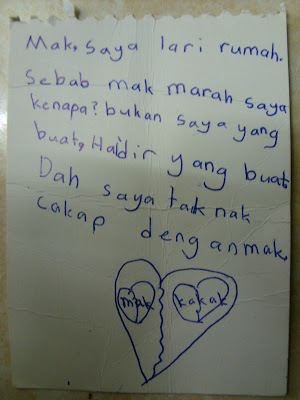 Mak, saya lari rumah.
Sebab mak marah saya
kenapa? bukan saya yang
buat, Haidir yang buat.
Dah saya tak nak
cakap dengan mak.
mak kakak